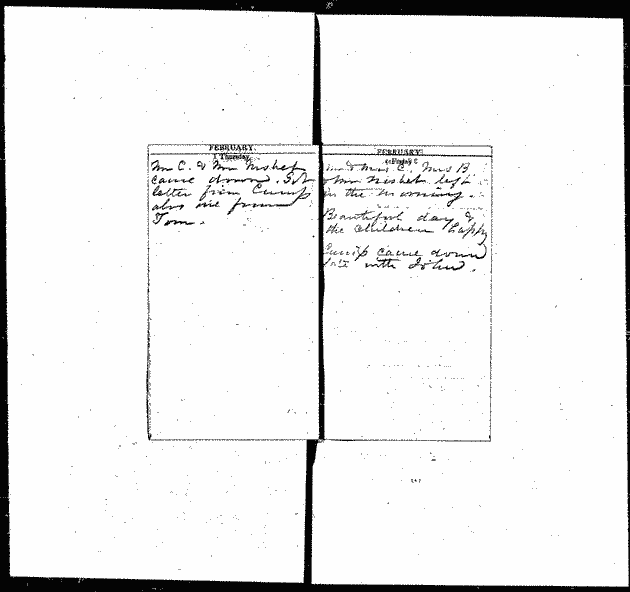 FEBRUARY.
1 Thursday.
Mr C. & Mr Nisbet
came down. Got
letter from
also one from
Tom.
FEBRUARY.
2 Friday
& Mrs C. Mrs B
Nisbet left
in the morning.
Beautiful day &
the children happy
came down
late with John.